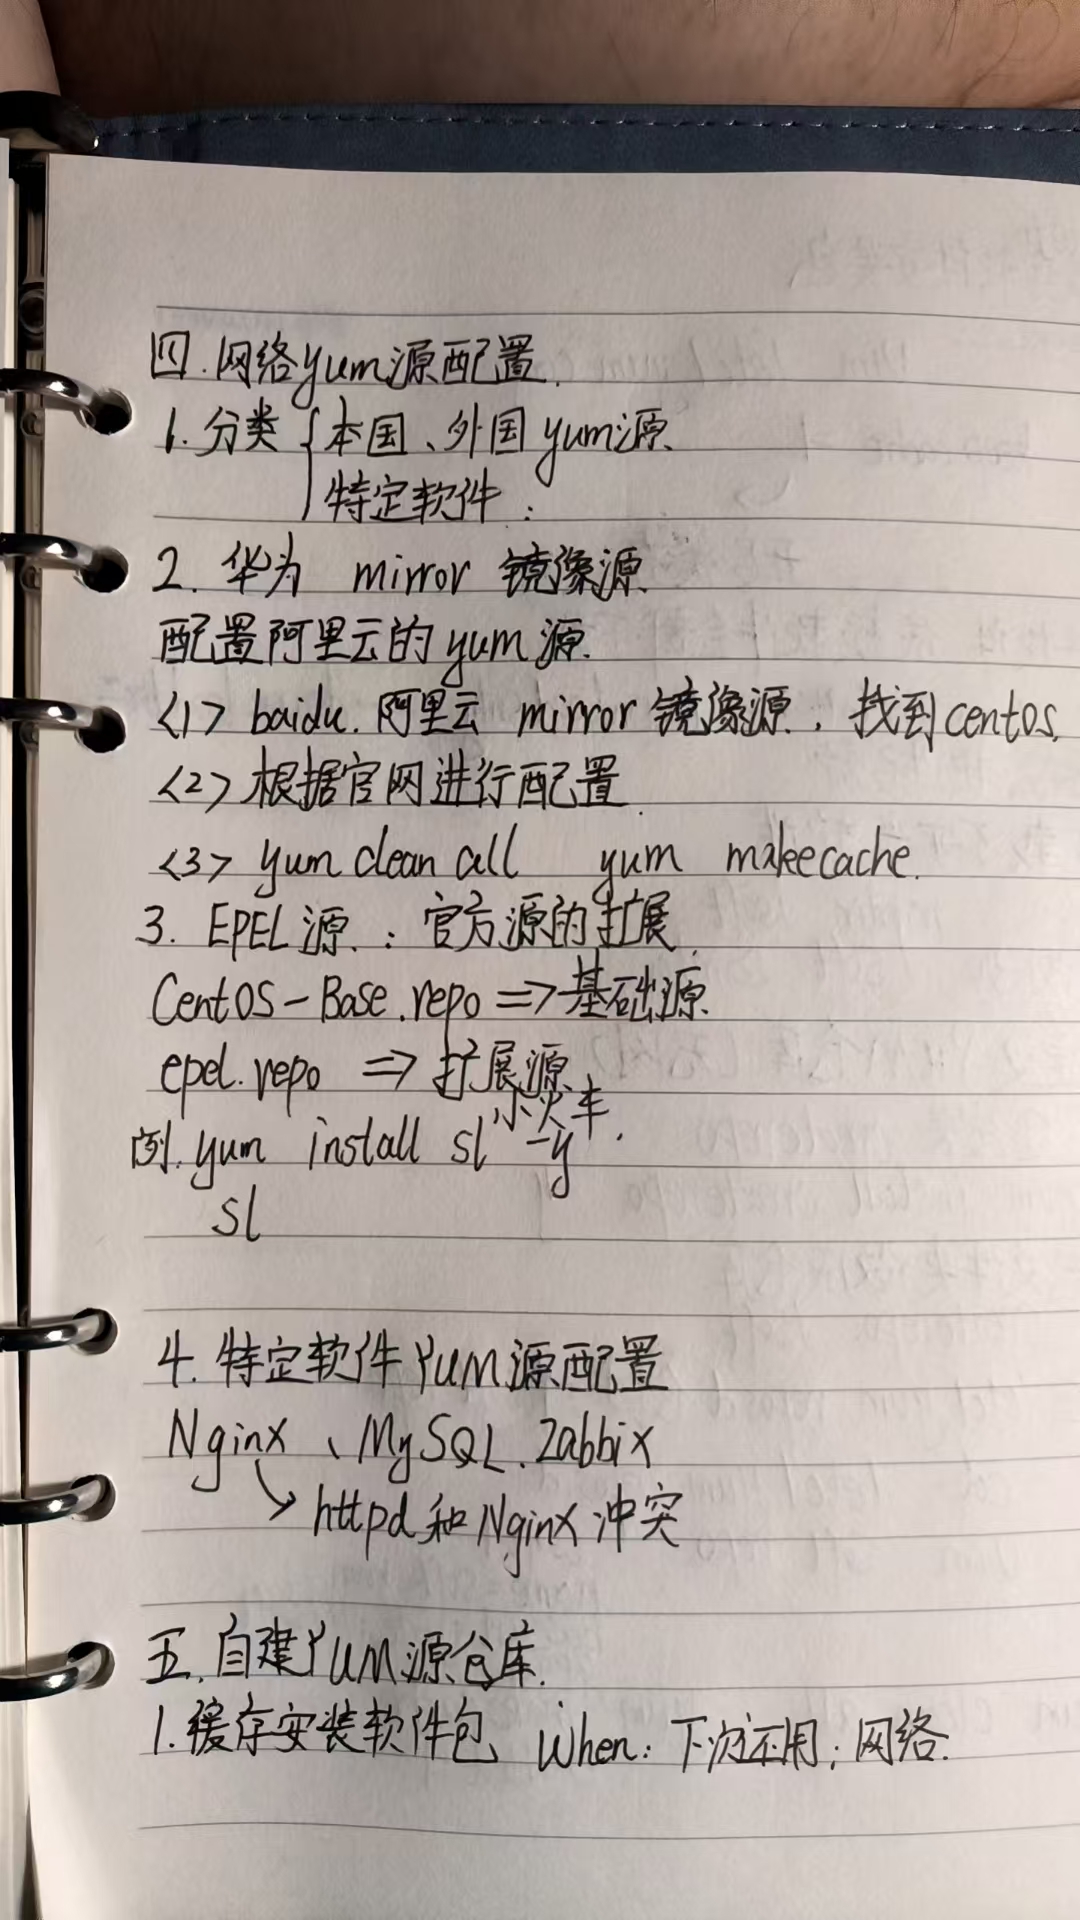 四.网络yum源配置.
1.分类{本国、外国yum源.
特定软件：
2.华为 mirror 镜像源.
配置阿里云的yum源.
<1> baidu.阿里云 mirror 镜像源.，找到centos.
<2>根据官网进行配置.
<3> yum clean all yum makecache.
3. EPEL源.：官方源的扩展.
CentOS-Base.repo=>基础源.
epel.repo => 扩展源.
小火车.
例.yum install sl -y
sl
4.特定软件Yum源配置
Nginx、MySQL.Zabbix
↘ httpd和Nginx冲突
五.自建Yum源仓库.
1.缓存安装软件包 When：下次还用；网络.